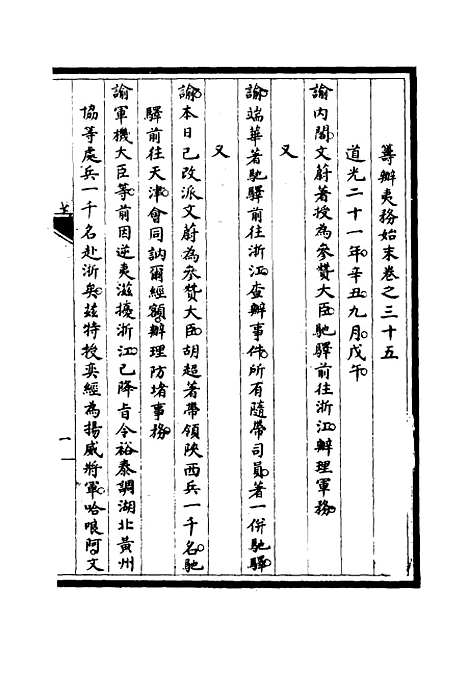 籌辦夷務始末卷之三十五
道光二十一年辛丑九月戊午
諭內閣文蔚著授為參贊大臣馳驛前往浙江辦理軍務
又
諭端華著馳驛前往浙江查辦事件所有隨帶司員著一併馳驛
又
諭本日已改派文蔚為參贊大臣胡超著帶領陝西兵一千名馳
驛前往天津會同訥爾經額辦理防堵事務
諭軍機大臣等前因逆夷滋擾浙江已降旨令裕泰調湖北黃州
協等處兵一千名赴浙矣茲特授奕經為揚威將軍哈哴阿文
一